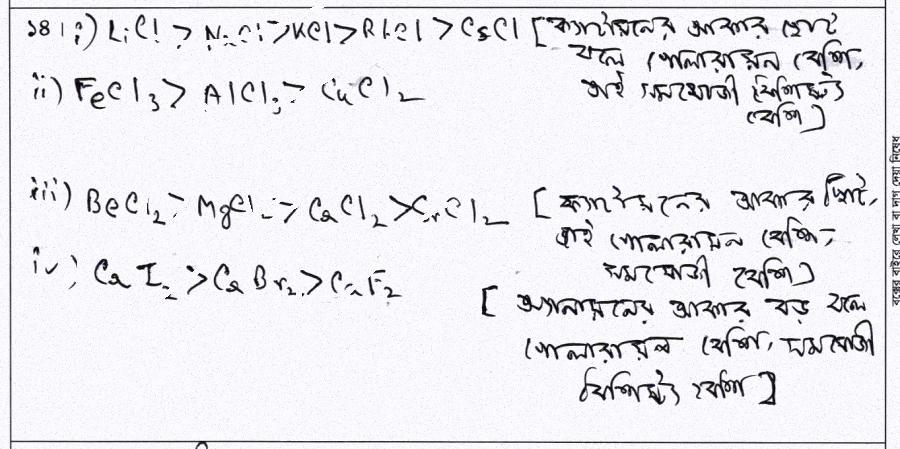 ১৪। i) LiCl > NaCl > KCl > RbCl > CsCl [ক্যাটায়নের আকার ছোট
বলে পোলারায়ন বেশি,
তাই সমযোজী বৈশিষ্ট্য
বেশি]
ii) FeCl3 > AlCl3 > CuCl2
iii) BeCl2 > MgCl2 > CaCl2 > SrCl2 [ক্যাটায়নের আকার ছোট,
তাই পোলারায়ন বেশি,
সমযোজী বেশি)
iv) CaI2 > CaBr2 > CaF2
[অ্যানায়নের আকার বড় বলে
পোলারায়ন বেশি, সমযোজী
বৈশিষ্ট্য বেশি]
বক্সের বাইরে লেখা বা দাগ দেয়া নিষেধ